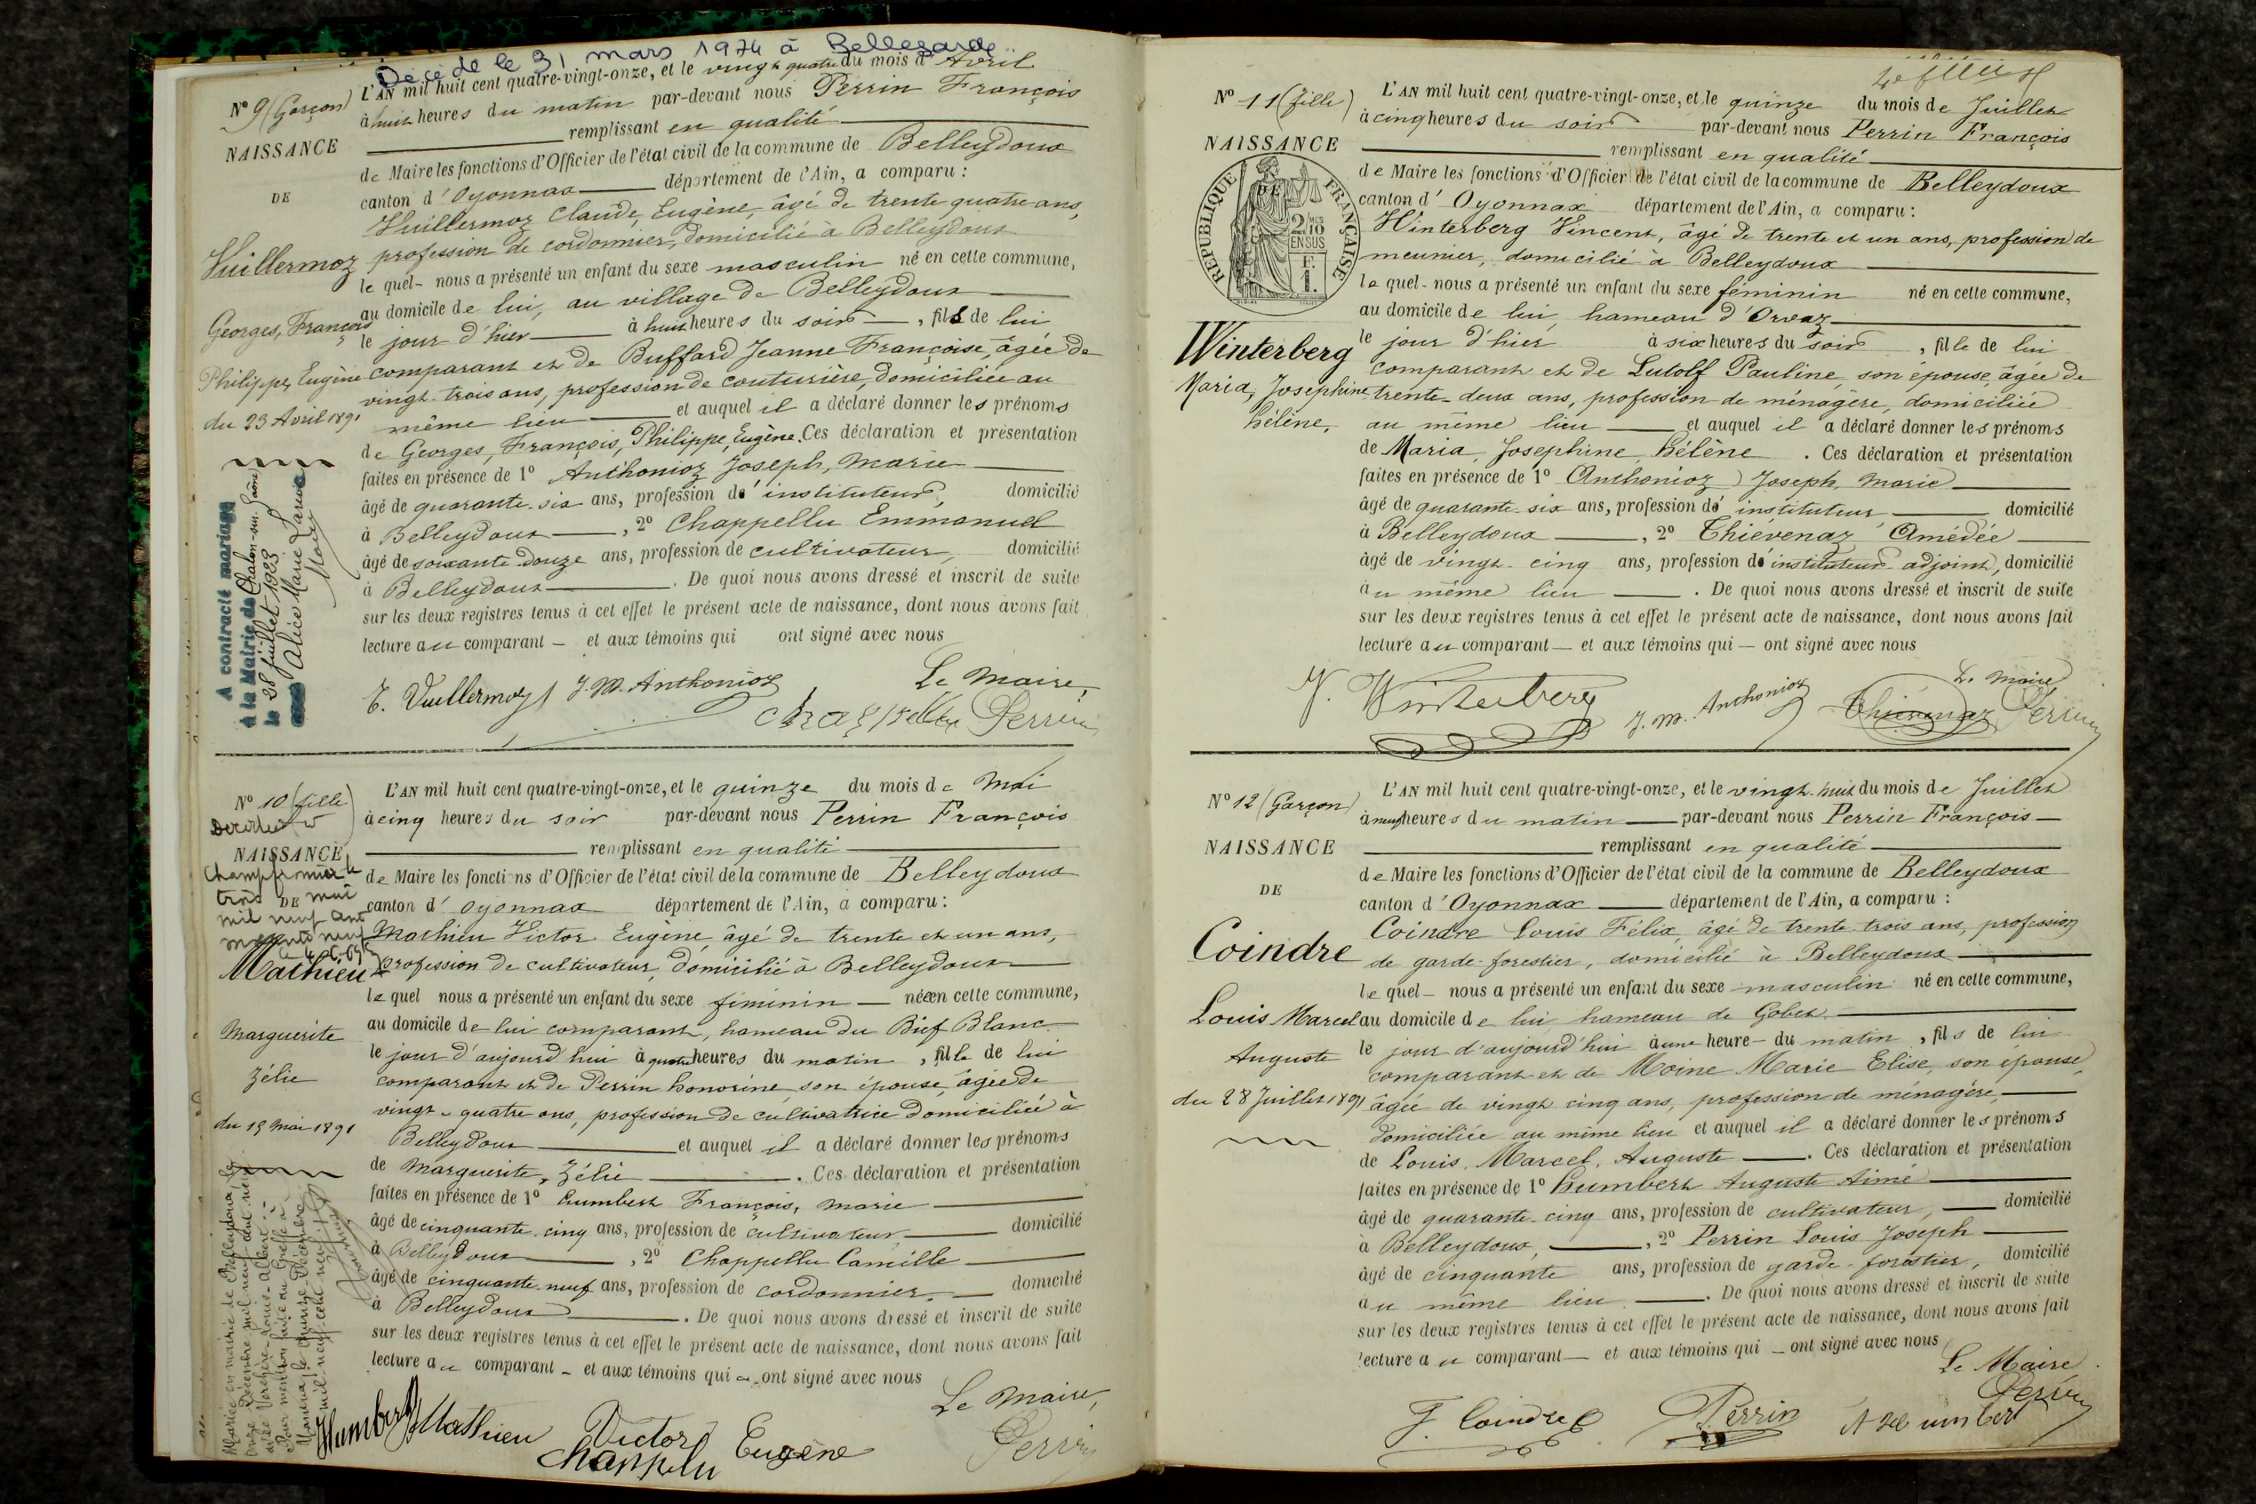 Décédé le 31 mars 1974 à Bellegarde
Nº 9 (Garçon)
NAISSANCE
DE
Vuillermoz
Georges, François
Philippe, Eugène
du 23 Avril 1891
A contracté mariage
à la Mairie de Chalon-sur-Saône
le 28 juillet 1923
Alice Marie
L'AN mil huit cent quatre-vingt-onze, et le vingt quatre du mois d'Avril
à huit heures du matin par-devant nous Perrin François
remplissant en qualité
de Maire les fonctions d'Officier de l'état civil de la commune de Belleydoux
canton d'Oyonnax département de l'Ain, a comparu :
Vuillermoz Claude, Eugène, âgé de trente quatre ans,
profession de cordonnier, domicilié à Belleydoux
le quel- nous a présenté un enfant du sexe masculin né en cette commune,
au domicile de lui, au village de Belleydoux
le jour d'hier à huit heures du soir, fils de lui
comparant et de Buffard Jeanne Françoise, âgée de
vingt-trois ans, profession de couturière, domiciliée au
même lieu et auquel il a déclaré donner les prénoms
de Georges, François, Philippe, Eugène. Ces déclaration et présentation
faites en présence de 1º Anthonioz Joseph, Marie
âgé de quarante-six ans, profession d'instituteur, domicilié
à Belleydoux, 2º Chappellu Emmanuel
âgé de soixante-douze ans, profession de cultivateur, domicilié
à Belleydoux. De quoi nous avons dressé et inscrit de suite
sur les deux registres tenus à cet effet le présent acte de naissance, dont nous avons fait
lecture au comparant - et aux témoins qui ont signé avec nous
Le Maire,
E. Vuillermoz J. M. Anthonioz Chappellu Perrin
Nº 10 (fille)
Décédée à
NAISSANCE
Champfromier le
trois mai
DE
mil neuf cent
Mathieu
Marguerite
Zélie
du 15 Mai 1891
Mariée en mairie de Belleydoux le
onze Décembre mil neuf cent neuf
avec Louis-Albert.-
Pour mention faite au Greffe à
Nantua, le quinze Décembre
mil neuf cent neuf
L'AN mil huit cent quatre-vingt-onze, et le quinze du mois de Mai
à cinq heures du soir par-devant nous Perrin François
remplissant en qualité
de Maire les fonctions d'Officier de l'état civil de la commune de Belleydoux
canton d'Oyonnax département de l'Ain, a comparu :
Mathieu Victor Eugène âgé de trente et un ans,
profession de cultivateur, domicilié à Belleydoux
le quel nous a présenté un enfant du sexe féminin - née en cette commune,
au domicile de lui comparant, hameau du Bief Blanc
le jour d'aujourd'hui à quatre heures du matin, fille de lui
comparant et de Perrin honorine son épouse, âgée de
vingt-quatre ans, profession de cultivatrice domiciliée à
Belleydoux et auquel il a déclaré donner les prénoms
de Marguerite, Zélie. Ces déclaration et présentation
faites en présence de 1º humbert François, Marie
âgé de cinquante-cinq ans, profession de cultivateur domicilié
à Belleydoux, 2º Chappellu Camille
âgé de cinquante-neuf ans, profession de cordonnier, domicilié
à Belleydoux. De quoi nous avons dressé et inscrit de suite
sur les deux registres tenus à cet effet le présent acte de naissance, dont nous avons fait
lecture au comparant - et aux témoins qui - ont signé avec nous
Le Maire,
Humbert Mathieu Victor Eugène Perrin
Chappelu
Nº 11 (fille)
NAISSANCE
DE
RÉPUBLIQUE FRANÇAISE
2/10 EN SUS
F. 1.
Winterberg
Maria, Josephine
hélène,
L'AN mil huit cent quatre-vingt-onze, et le quinze du mois de Juillet
à cinq heures du soir par-devant nous Perrin François
remplissant en qualité
de Maire les fonctions d'Officier de l'état civil de la commune de Belleydoux
canton d'Oyonnax département de l'Ain, a comparu :
Winterberg Vincent, âgé de trente et un ans, profession de
meunier, domicilié à Belleydoux
le quel - nous a présenté un enfant du sexe féminin né en cette commune,
au domicile de lui hameau d'Orvaz
le jour d'hier à six heures du soir, fille de lui
comparant et de Lutolf Pauline, son épouse, âgée de
trente-deux ans, profession de ménagère, domiciliée
au même lieu et auquel il a déclaré donner les prénoms
de Maria, Josephine, hélène. Ces déclaration et présentation
faites en présence de 1º Anthonioz Joseph Marie
âgé de quarante-six ans, profession d'instituteur domicilié
à Belleydoux, 2º Thiévenaz Amédée
âgé de vingt-cinq ans, profession d'instituteur adjoint, domicilié
au même lieu. De quoi nous avons dressé et inscrit de suite
sur les deux registres tenus à cet effet le présent acte de naissance, dont nous avons fait
lecture au comparant - et aux témoins qui - ont signé avec nous
Le Maire
V. Winterberg J. M. Anthonioz Thiévenaz Perrin
Nº 12 (Garçon)
NAISSANCE
DE
Coindre
Louis Marcel
Auguste
du 28 Juillet 1891
L'AN mil huit cent quatre-vingt-onze, et le vingt-huit du mois de Juillet
à neuf heures du matin par-devant nous Perrin François
remplissant en qualité
de Maire les fonctions d'Officier de l'état civil de la commune de Belleydoux
canton d'Oyonnax département de l'Ain, a comparu :
Coindre Louis Félix, âgé de trente-trois ans, profession
de garde-forestier, domicilié à Belleydoux
le quel - nous a présenté un enfant du sexe masculin né en cette commune,
au domicile de lui hameau de Gobet
le jour d'aujourd'hui à une heure - du matin, fils de lui
comparant et de Moine Marie Elise, son épouse,
âgée de vingt cinq ans, profession de ménagère,
domiciliée au même lieu et auquel il a déclaré donner les prénoms
de Louis, Marcel, Auguste. Ces déclaration et présentation
faites en présence de 1º humbert Auguste Aimé
âgé de quarante-cinq ans, profession de cultivateur, domicilié
à Belleydoux, 2º Perrin Louis Joseph
âgé de cinquante ans, profession de garde-forestier, domicilié
au même lieu. De quoi nous avons dressé et inscrit de suite
sur les deux registres tenus à cet effet le présent acte de naissance, dont nous avons fait
lecture au comparant - et aux témoins qui - ont signé avec nous
Le Maire
F. Coindre Perrin A Humbert Perrin